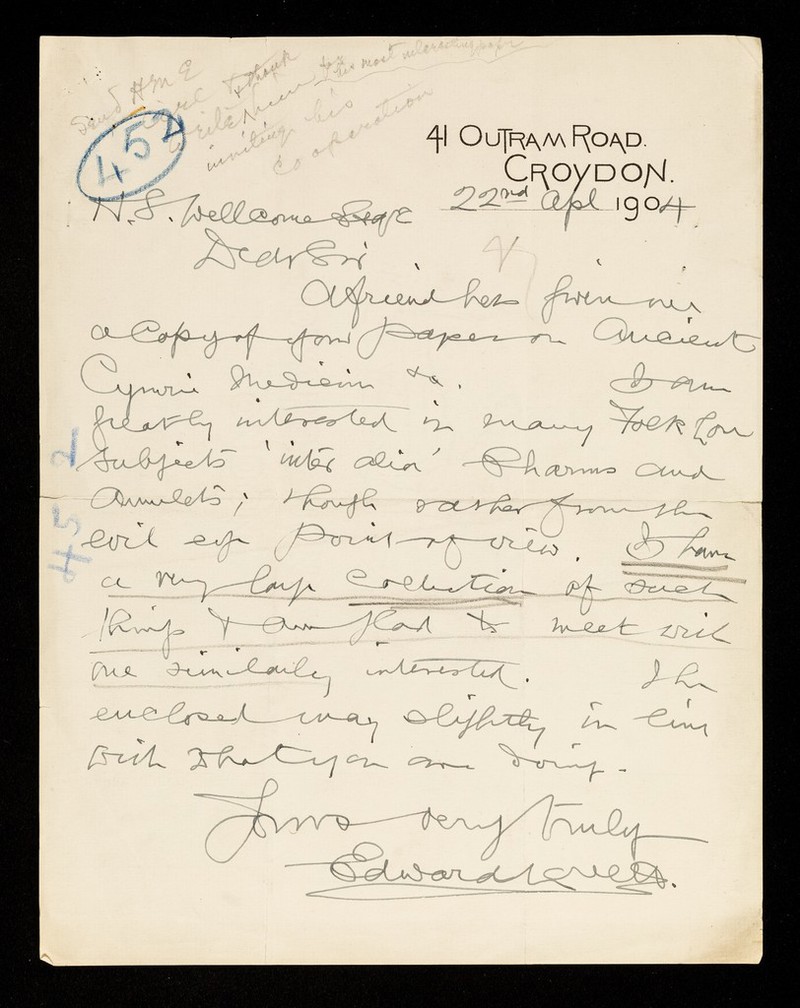 Send HME
& thank
him for his most interesting paper
inviting his
cooperation
452
41 OUTRAM ROAD.
CROYDON.
22nd Apl 1904
H. S. Wellcome Esqre
Dear Sir
A friend has given me
a copy of your paper on Ancient
Cymric Medicine &c. I am
greatly interested in many Folk Lore
subjects 'inter alia' Charms and
Amulets; though rather from the
evil eye point of view. I have
a very large collection of such
things & am glad to meet with
one similarly interested. The
enclosed may slightly in line
with what you are doing.
Yours very truly
Edward Lovett.
452